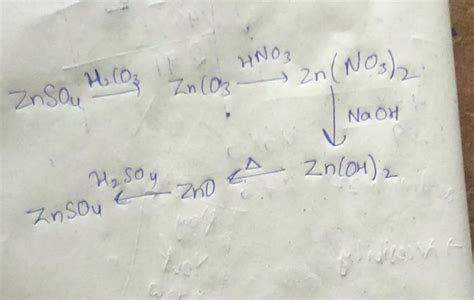 ZnSO4 H2CO3 → ZnCO3 HNO3 → Zn(NO3)2
↓ NaOH
ZnSO4 ← H2SO4 ZnO ← Δ Zn(OH)2